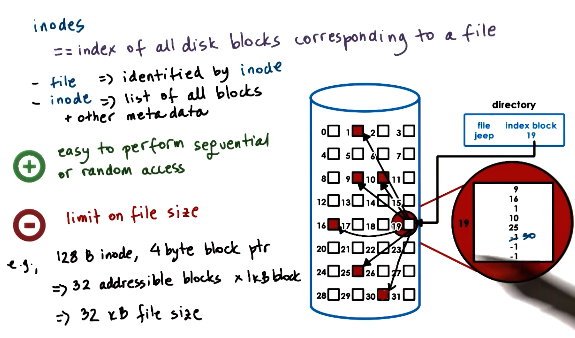 inodes
== index of all disk blocks corresponding to a file
- file => identified by inode
- inode => list of all blocks
+ other metadata
+
easy to perform sequential
or random access
-
limit on file size
e.g., 128 B inode, 4 byte block ptr
=> 32 addressible blocks x 1kB block
=> 32 kB file size
directory
file index block
jeep 19
0 1 2 3
4 5 6 7
8 9 10 11
12 13 14 15
16 17 18 19
20 21 22 23
24 25 26 27
28 29 30 31
19
9
16
1
10
25
30
-1
-1